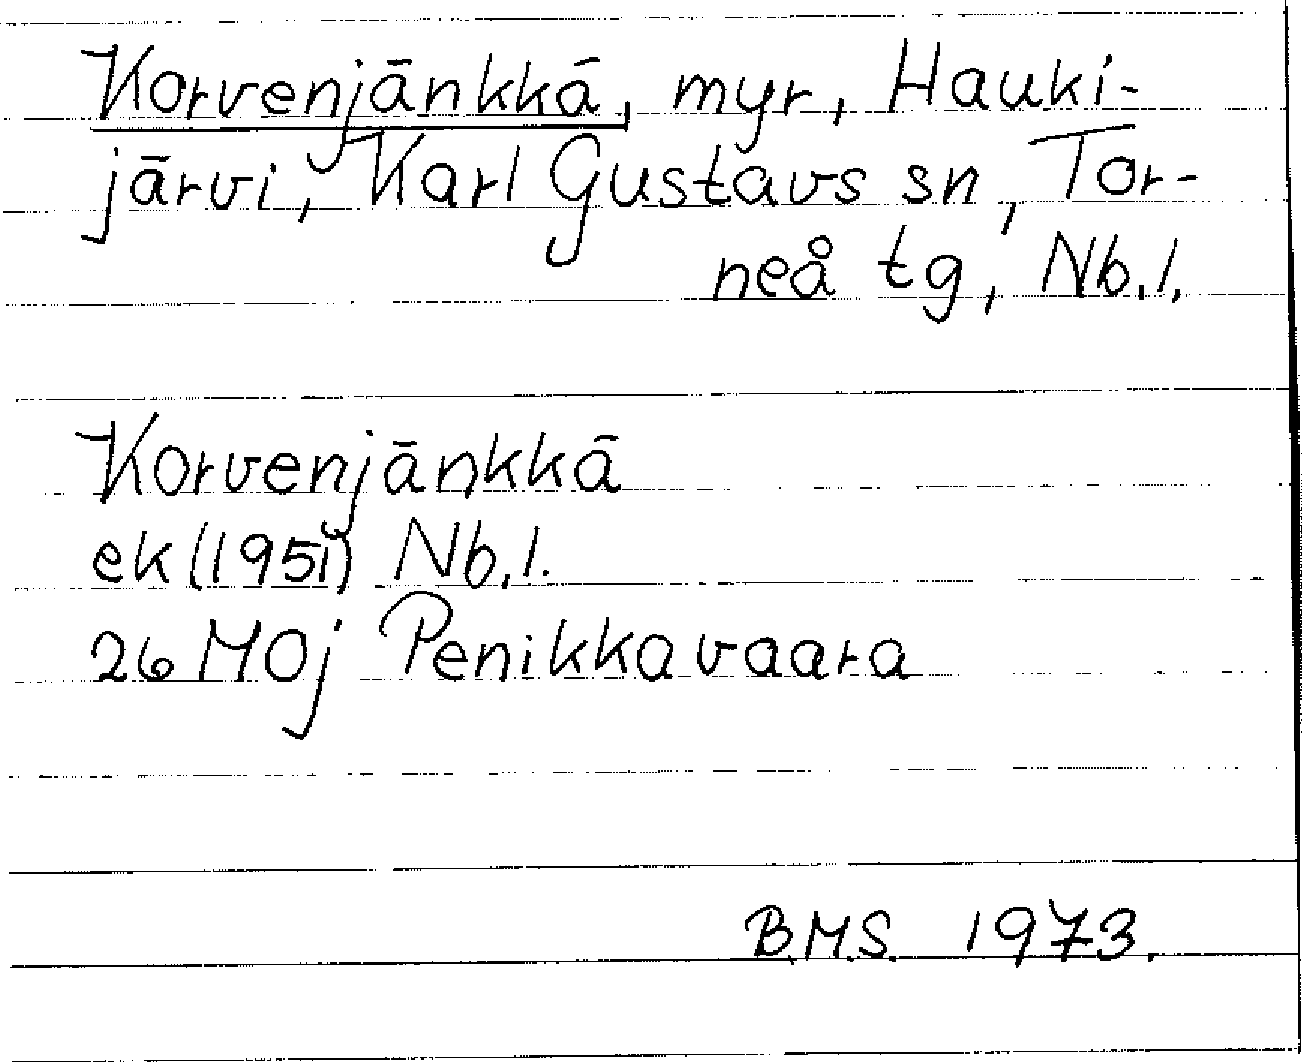 Korvenjänkkä, myr, Hauki-
järvi, Karl Gustavs sn, Tor-
neå tg, Nb.l.
Korvenjänkkä
ek (1951) Nb.l.
26 M0j Penikkavaara
B.M.S. 1973.